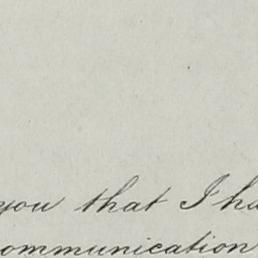 you that I ha
ommunication